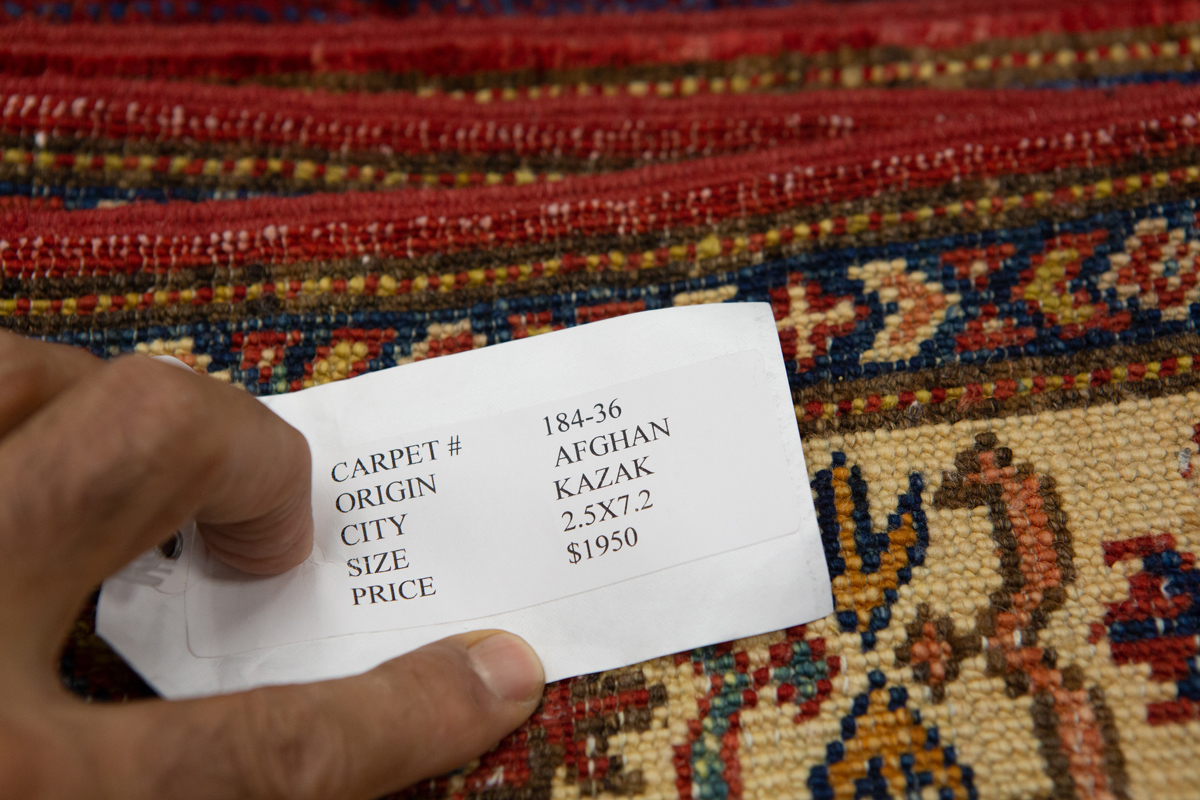 CARPET # 184-36
ORIGIN AFGHAN
CITY KAZAK
SIZE 2.5X7.2
PRICE $1950